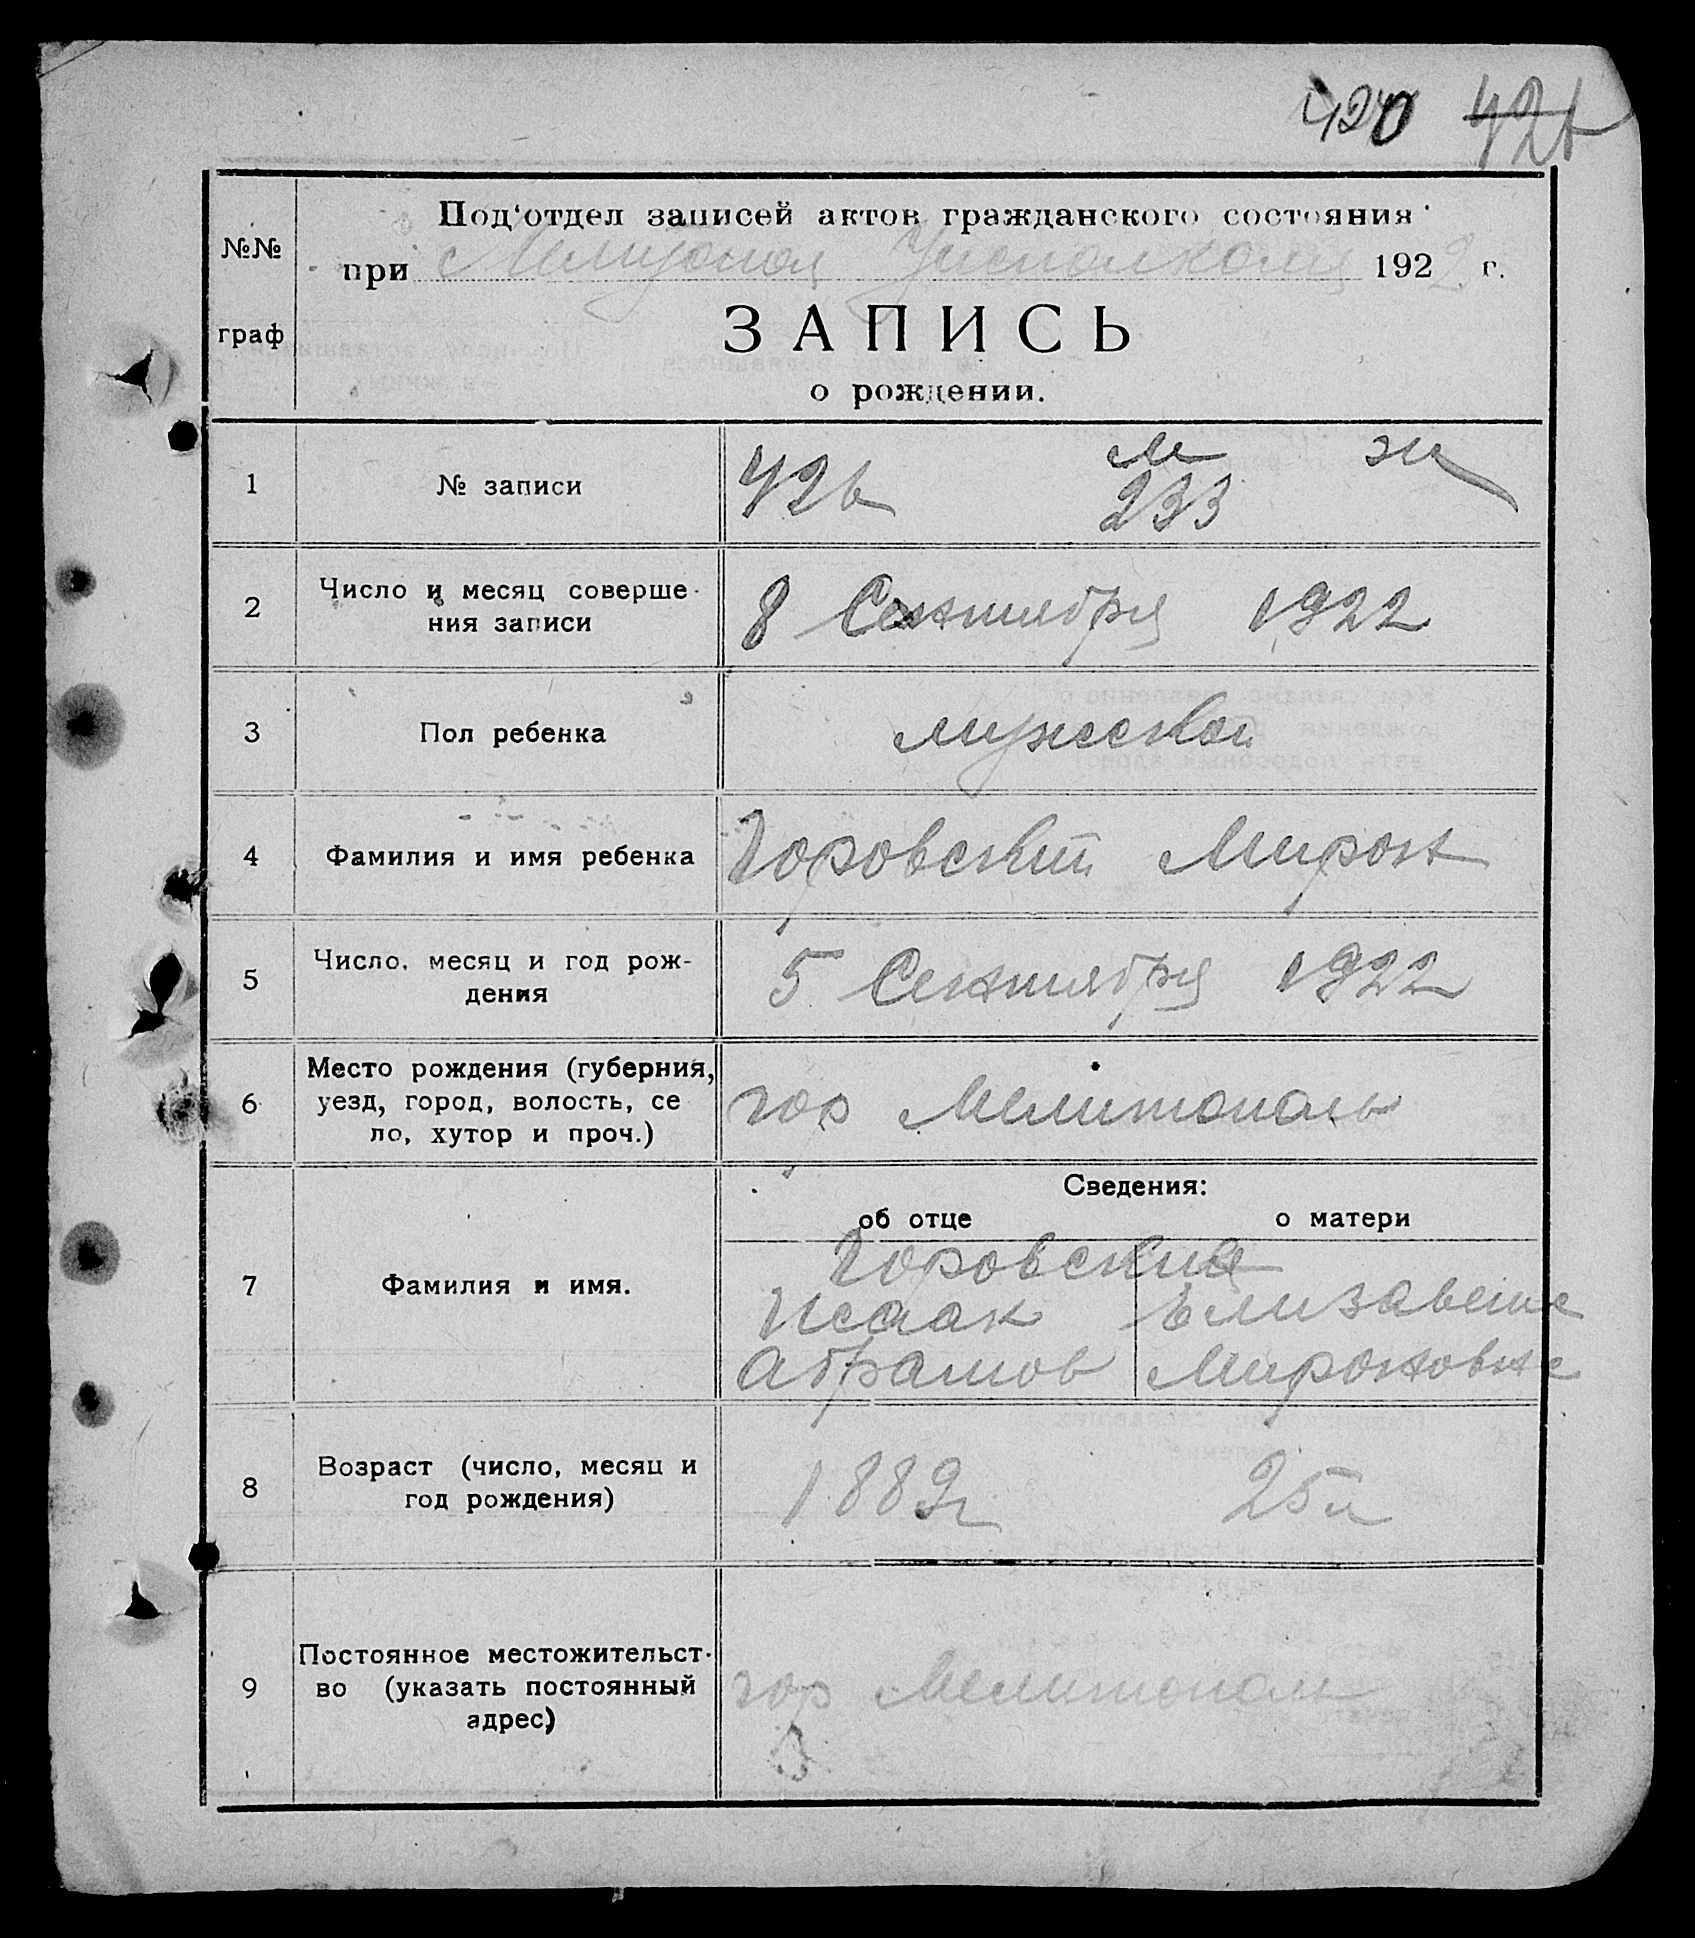 420 421
Под'отдел записей актов гражданского состояния
№№
при Мелитопол Уисполкоме 1922 г.
граф
ЗАПИСЬ
о рождении.
м ж
1 № записи 426
233
2 Число и месяц соверше-
ния записи
8 Сентября 1922
3 Пол ребенка мужской
4 Фамилия и имя ребенка Горовский Мирон
5 Число, месяц и год рож-
дения
5 Сентября 1922
6 Место рождения (губерния,
уезд, город, волость, се
ло, хутор и проч.)
гор Мелитополь
Сведения:
об отце о матери
7 Фамилия и имя.
Горовские
Исаак Елизавета
Абрамов Мироновна
8 Возраст (число, месяц и
год рождения)
1889г 25л
9 Постоянное местожительст-
во (указать постоянный
адрес)
гор Мелитополь